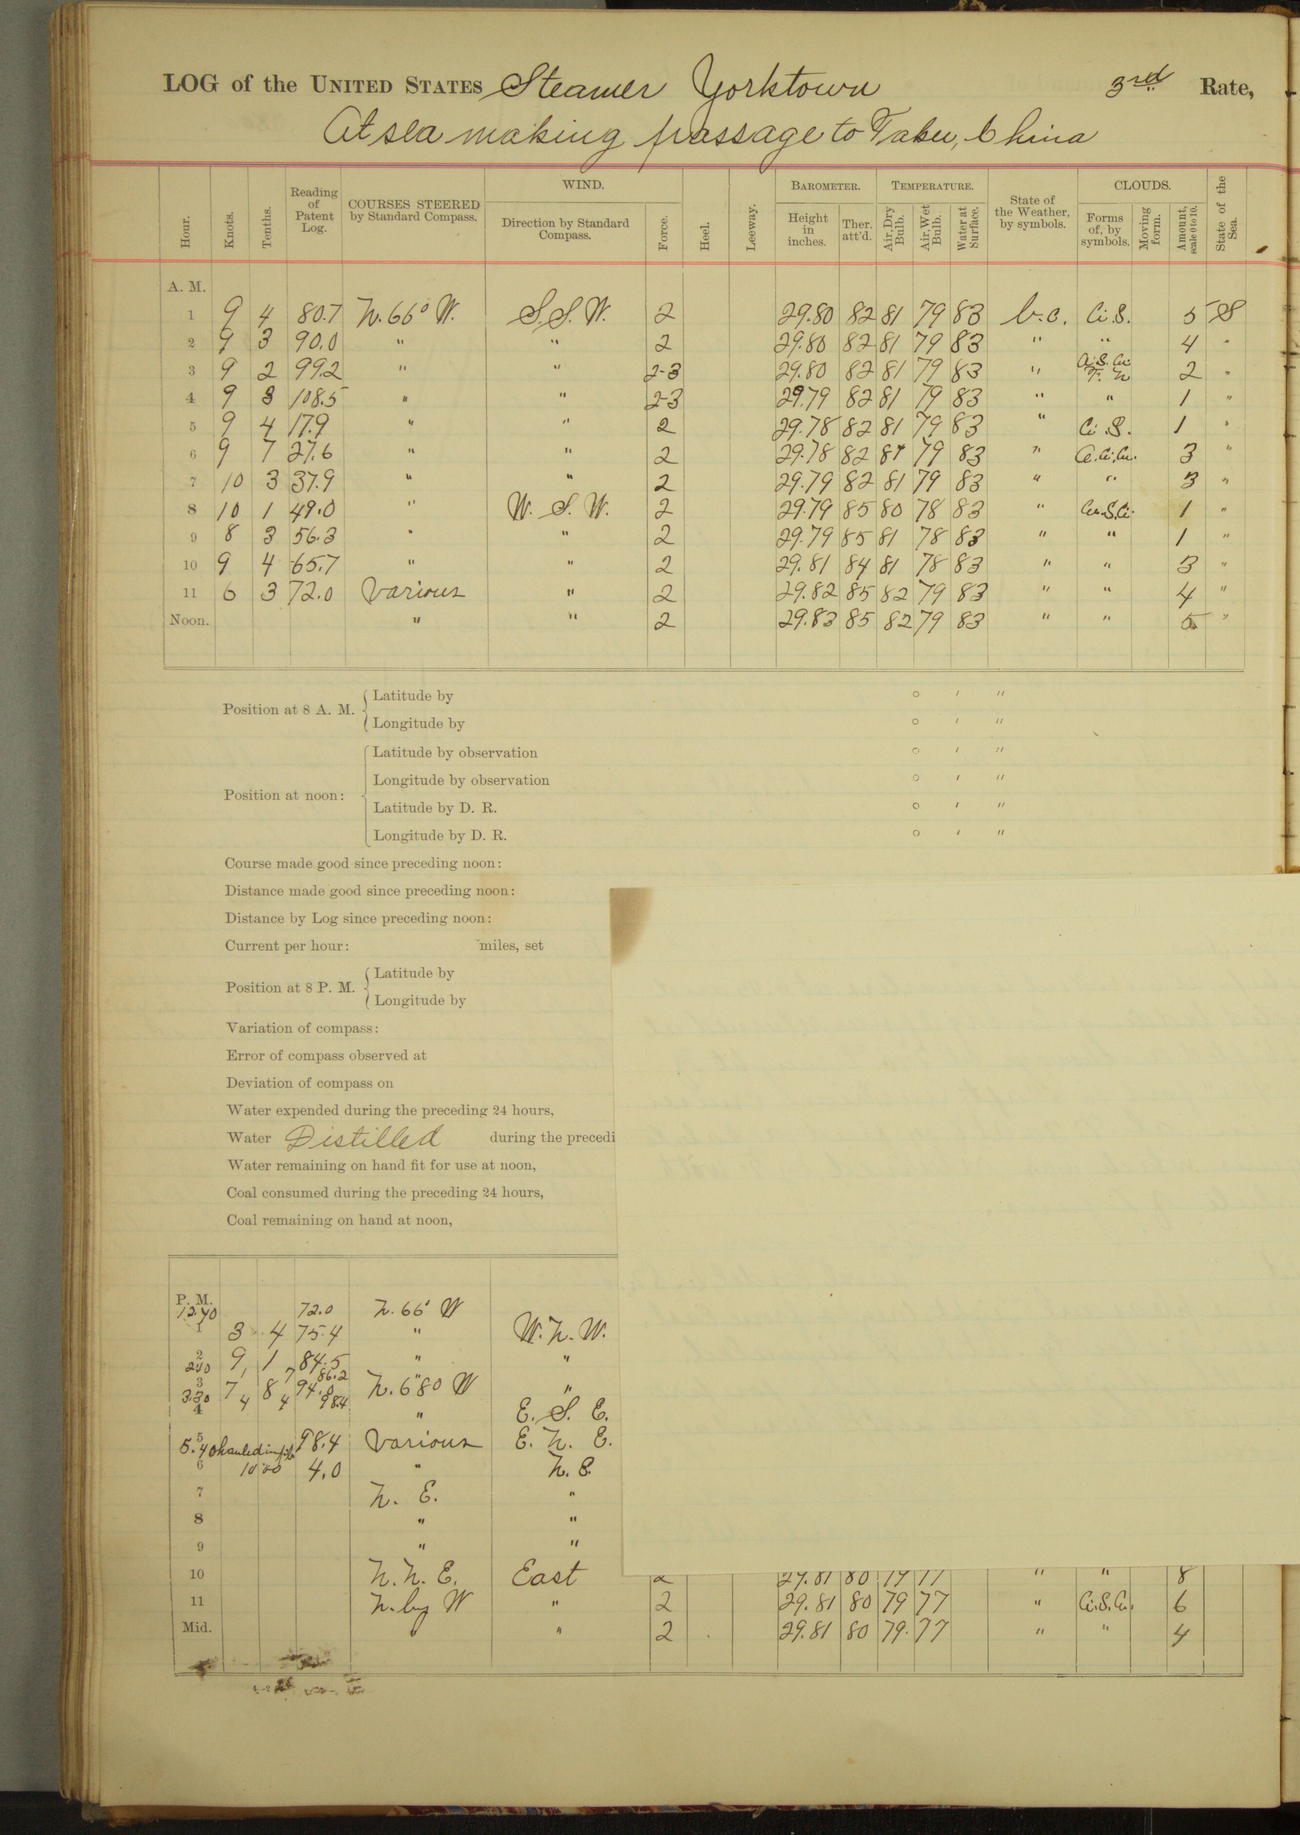 LOG of the UNITED STATES Steamer Yorktown 3rd Rate,
At sea making passage to Taku, China
Hour. Knots. Tenths. Reading of Patent Log. COURSES STEERED by Standard Compass. WIND. Direction by Standard Compass. Force. Heel. Leeway. BAROMETER. Height in inches. Ther. att'd. TEMPERATURE. Air, Dry Bulb. Air, Wet Bulb. Water at Surface. State of the Weather, by symbols. CLOUDS. Forms of, by symbols. Moving form. Amount, scale 0 to 10. State of the Sea.
A. M.
1 9 4 80.7 N. 66° W. S.S.W. 2 29.80 82 81 79 83 b.c. Ci.S. 5 S
2 9 3 90.0 " " 2 29.80 82 81 79 83 " " 4 "
3 9 2 99.2 " " 2-3 29.80 82 81 79 83 " 2 "
4 9 3 108.5 " " 2-3 29.79 82 81 79 83 " " 1 "
5 9 4 17.9 " " 2 29.78 82 81 79 83 " Ci.S. 1 "
6 9 7 27.6 " " 2 29.78 82 81 79 83 " 3 "
7 10 3 37.9 " " 2 29.79 82 81 79 83 " " 3 "
8 10 1 49.0 " W.S.W. 2 29.79 85 80 78 83 " 1 "
9 8 3 56.3 " " 2 29.79 85 81 78 83 " " 1 "
10 9 4 65.7 " " 2 29.81 84 81 78 83 " " 3 "
11 6 3 72.0 Various " 2 29.82 85 82 79 83 " " 4 "
Noon. " " 2 29.83 85 82 79 83 " " 5 "
Position at 8 A. M. Latitude by ° ' "
Longitude by ° ' "
Position at noon: Latitude by observation ° ' "
Longitude by observation ° ' "
Latitude by D. R. ° ' "
Longitude by D. R. ° ' "
Course made good since preceding noon:
Distance made good since preceding noon:
Distance by Log since preceding noon:
Current per hour: miles, set
Position at 8 P. M. Latitude by
Longitude by
Variation of compass:
Error of compass observed at
Deviation of compass on
Water expended during the preceding 24 hours,
Water Distilled during the precedi
Water remaining on hand fit for use at noon,
Coal consumed during the preceding 24 hours,
Coal remaining on hand at noon,
P. M.
12.40 72.0 N. 66° W
1 3 4 75.4 " W.N.W.
2 9 1 84.5 " "
2.10 7 86.2
3 7 8 94.0 N. 680 W "
3.30 4 4 98.4
4 " E.S.E.
5 98.4 Various E.N.E.
5.40 hauled in
6 4.0 " N.E.
7 N. E. "
8 " "
9 " "
10 N.N.E. East 2 29.81 80 79 77 " " 8
11 N. by W " 2 29.81 80 79 77 " Ci.S.Cu. 6
Mid. " " 2 29.81 80 79 77 " " 4